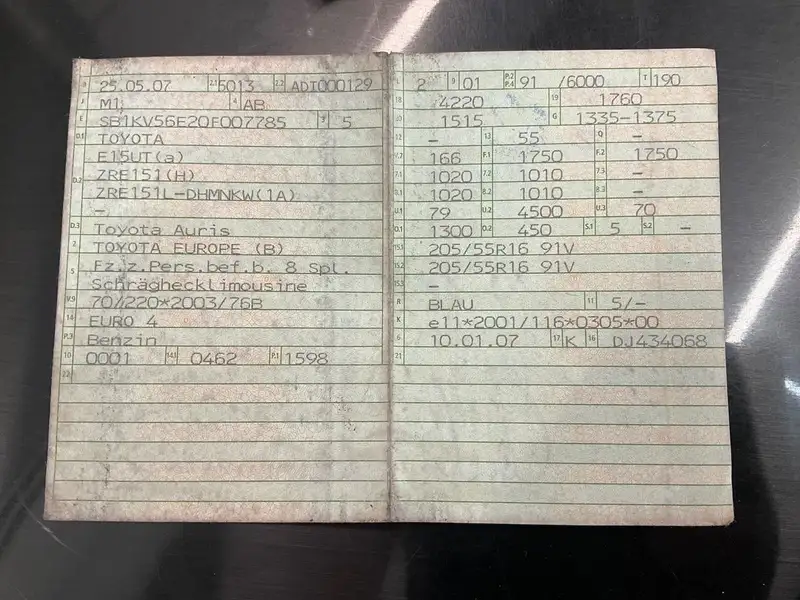 B 25.05.07 2.1 5013 2.2 ADT000129
J M1 4 AB
E SB1KV56E20F007785 3 5
D.1 TOYOTA
E15UT(a)
D.2 ZRE151(H)
ZRE151L-DHMNKW(1A)
–
D.3 Toyota Auris
2 TOYOTA EUROPE (B)
5 Fz.z.Pers.bef.b. 8 Spl.
Schräghecklimousine
V.9 70/220*2003/76B
14 EURO 4
P.3 Benzin
10 0001 14.1 0462 P.1 1598
22
L 2 9 01 P.2 P.4 91 /6000 T 190
18 4220 19 1760
20 1515 G 1335-1375
12 – 13 55 Q –
V.7 166 F.1 1750 F.2 1750
7.1 1020 7.2 1010 7.3 –
8.1 1020 8.2 1010 8.3 –
U.1 79 U.2 4500 U.3 70
O.1 1300 O.2 450 S.1 5 S.2 –
15.1 205/55R16 91V
15.2 205/55R16 91V
15.3 –
R BLAU 11 5/–
K e11*2001/116*0305*00
6 10.01.07 17 K 16 DJ434068
21